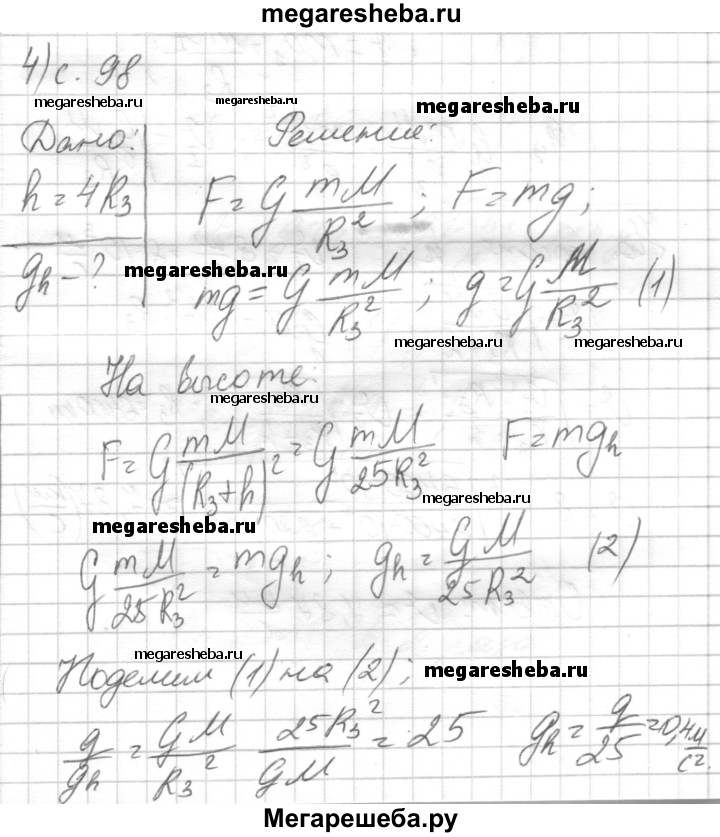 megaresheba.ru
4) с. 98
megaresheba.ru megaresheba.ru megaresheba.ru
Дано: Решение:
h = 4R₃ F = G mM/R₃² ; F = mg;
gₕ - ? megaresheba.ru mg = G mM/R₃² ; g = G M/R₃² (1)
megaresheba.ru megaresheba.ru
На высоте:
megaresheba.ru
F = G mM/(R₃+h)² = G mM/25R₃² F = mgₕ
megaresheba.ru
megaresheba.ru
G mM/25R₃² = mgₕ ; gₕ = GM/25R₃² (2)
megaresheba.ru
Поделим (1) на (2); megaresheba.ru
g/gₕ = GM/R₃² 25R₃²/GM = 25 gₕ = g/25 = 0,4 м/с².
Мегарешеба.ру